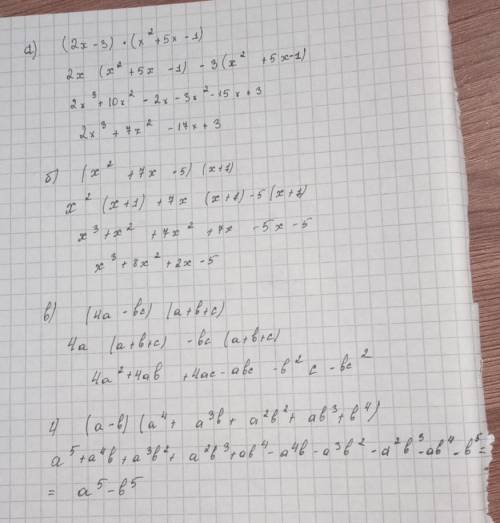 а) (2x-3) · (x²+5x-1)
2x (x²+5x-1) -3(x²+5x-1)
2x³+10x²-2x-3x²-15x+3
2x³+7x²-17x+3
б) (x²+7x-5) (x+1)
x² (x+1) +7x (x+1)-5(x+1)
x³+x²+7x²+7x-5x-5
x³+8x²+2x-5
в) (4a-bc) (a+b+c)
4a (a+b+c) -bc (a+b+c)
4a²+4ab+4ac-abc-b²c-bc²
г) (a-b) (a⁴+a³b+a²b²+ab³+b⁴)
a⁵+a⁴b+a³b²+a²b³+ab⁴-a⁴b-a³b²-a²b³-ab⁴-b⁵=
= a⁵-b⁵